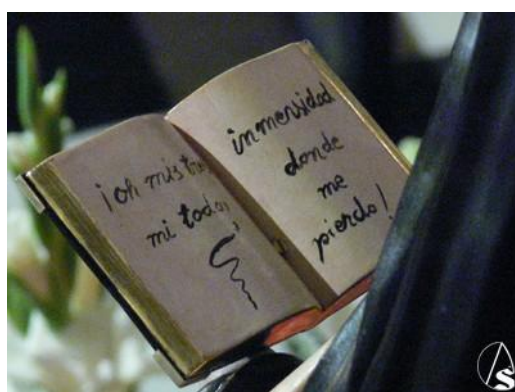 ¡oh mis tres
mi todo,
inmensidad
donde
me
pierdo!